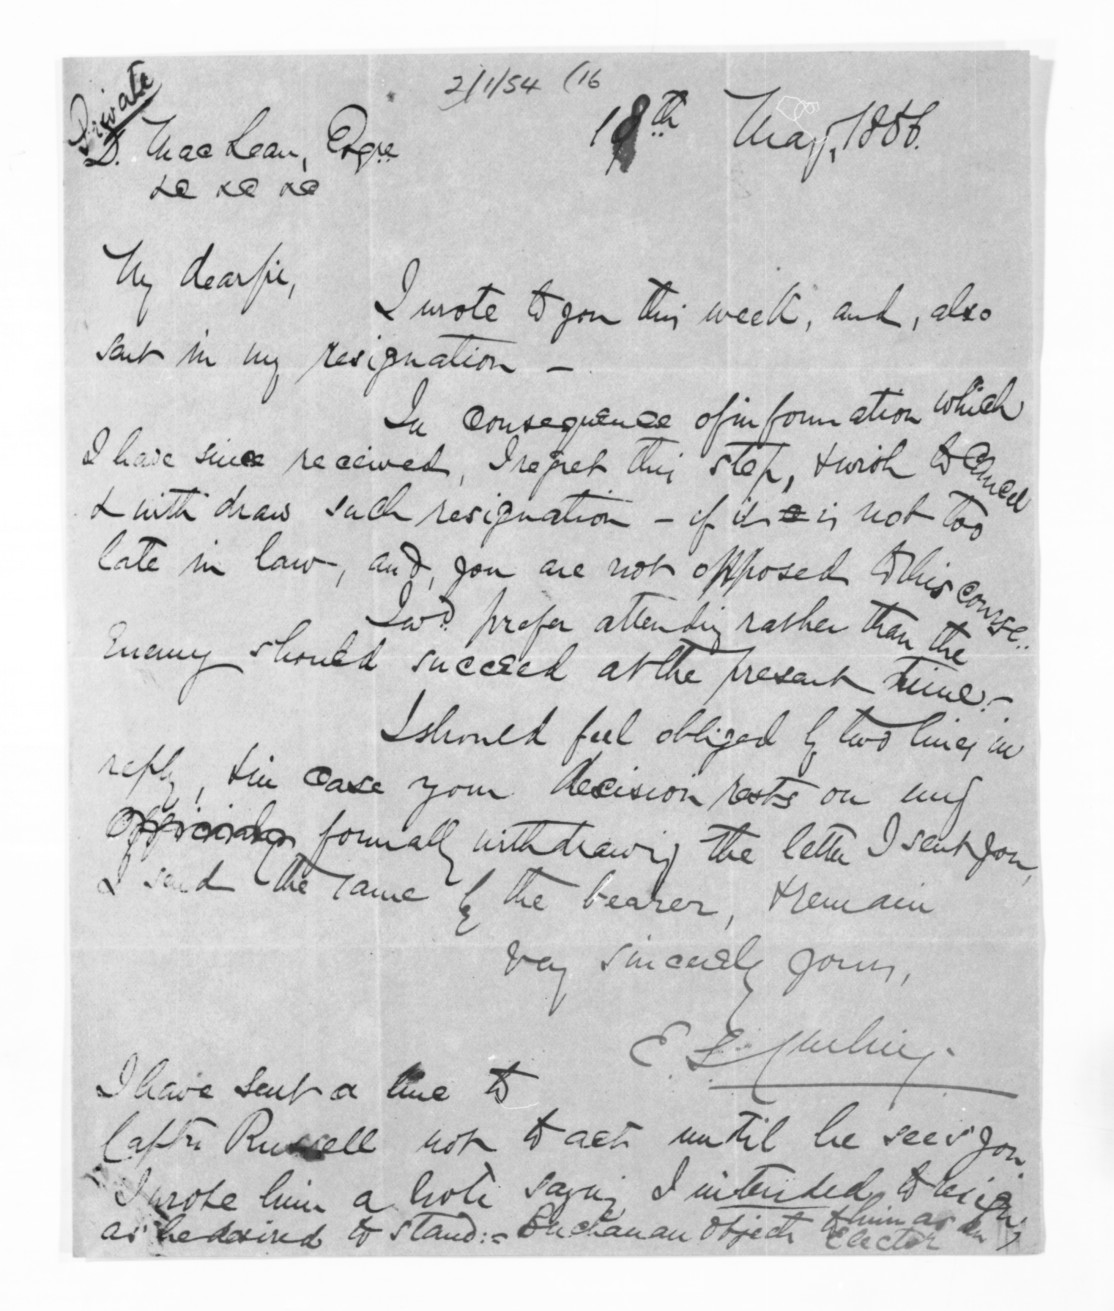 2/1/54 (16
Private
18th May, 1858.
D. MacLean, Esqre
&c &c &c
My dear Sir,
I wrote to you this week, and, also
sent in my resignation —
In consequence of information which
I have since received, I regret this step, & wish to cancel
& withdraw such resignation — if it is not too
late in law, and, you are not opposed to this course..
I wd. prefer attending rather than the
Enemy should succeed at the present time. —
I should feel obliged by two lines in
reply, & in case your decision rests on my
officially formally withdrawing the letter I sent you,
I send the same by the bearer, & remain
Very sincerely yours,
E. S. Curling.
I have sent a line to
Captn Russell not to act until he sees you
I wrote him a note saying I intended to resign
as he desired to stand :- Buchanan objects to him as an
Elector